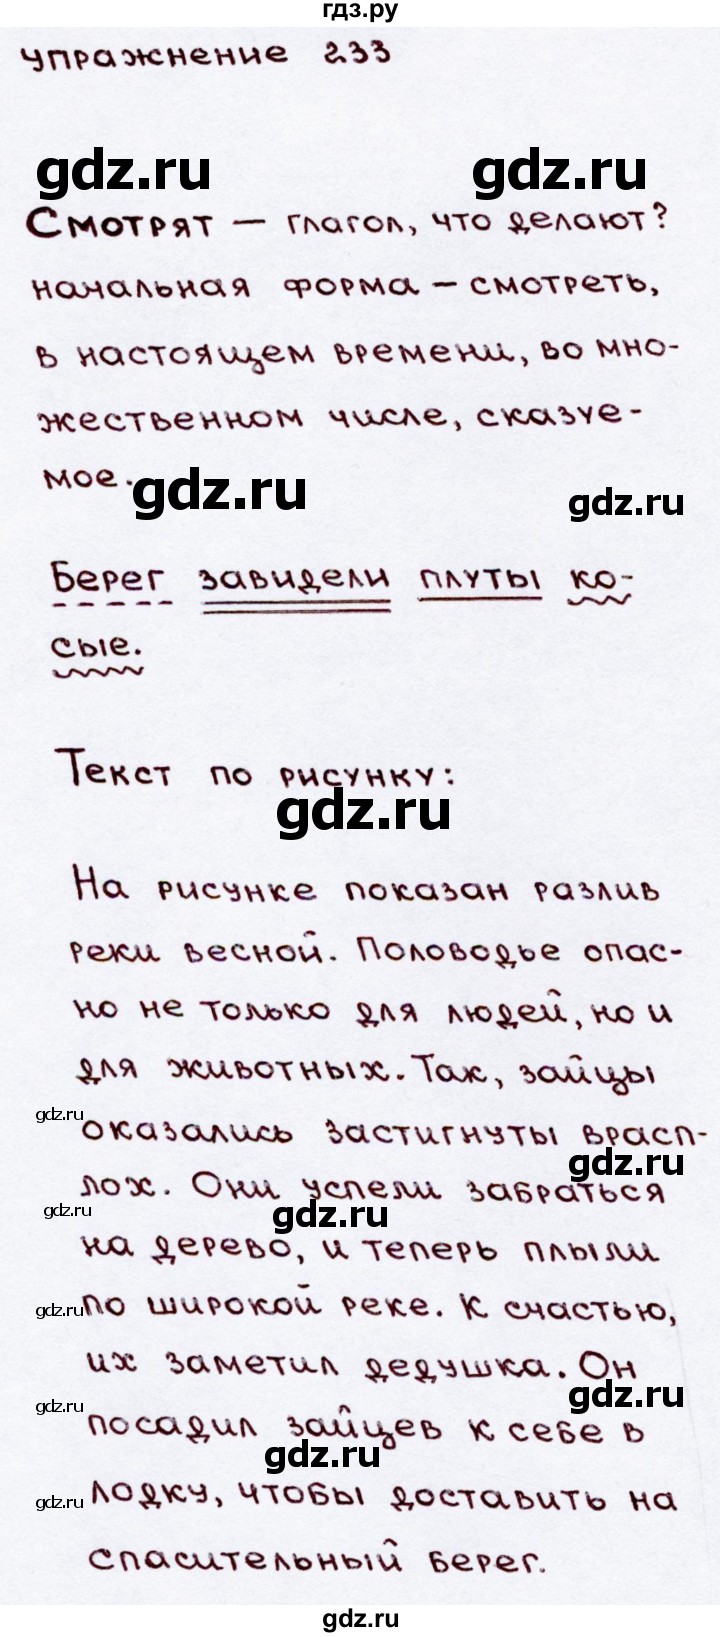 гдз.ру
упражнение 233
gdz.ru gdz.ru
Смотрят – глагол, что делают?
начальная форма – смотреть,
в настоящем времени, во мно-
жественном числе, сказуе-
мое.
gdz.ru gdz.ru
Берег завидели плуты ко-
сые.
Текст по рисунку:
gdz.ru
На рисунке показан разлив
реки весной. Половодье опас-
но не только для людей, но и
для животных. Так, зайцы
gdz.ru
оказались застигнуты врасп-
gdz.ru
лох. Они успели забраться
gdz.ru gdz.ru
на дерево, и теперь плыли
gdz.ru
по широкой реке. К счастью,
их заметил дедушка. Он
gdz.ru gdz.ru
посадил зайцев к себе в
gdz.ru
gdz.ru
лодку, чтобы доставить на
спасительный берег.
gdz.ru